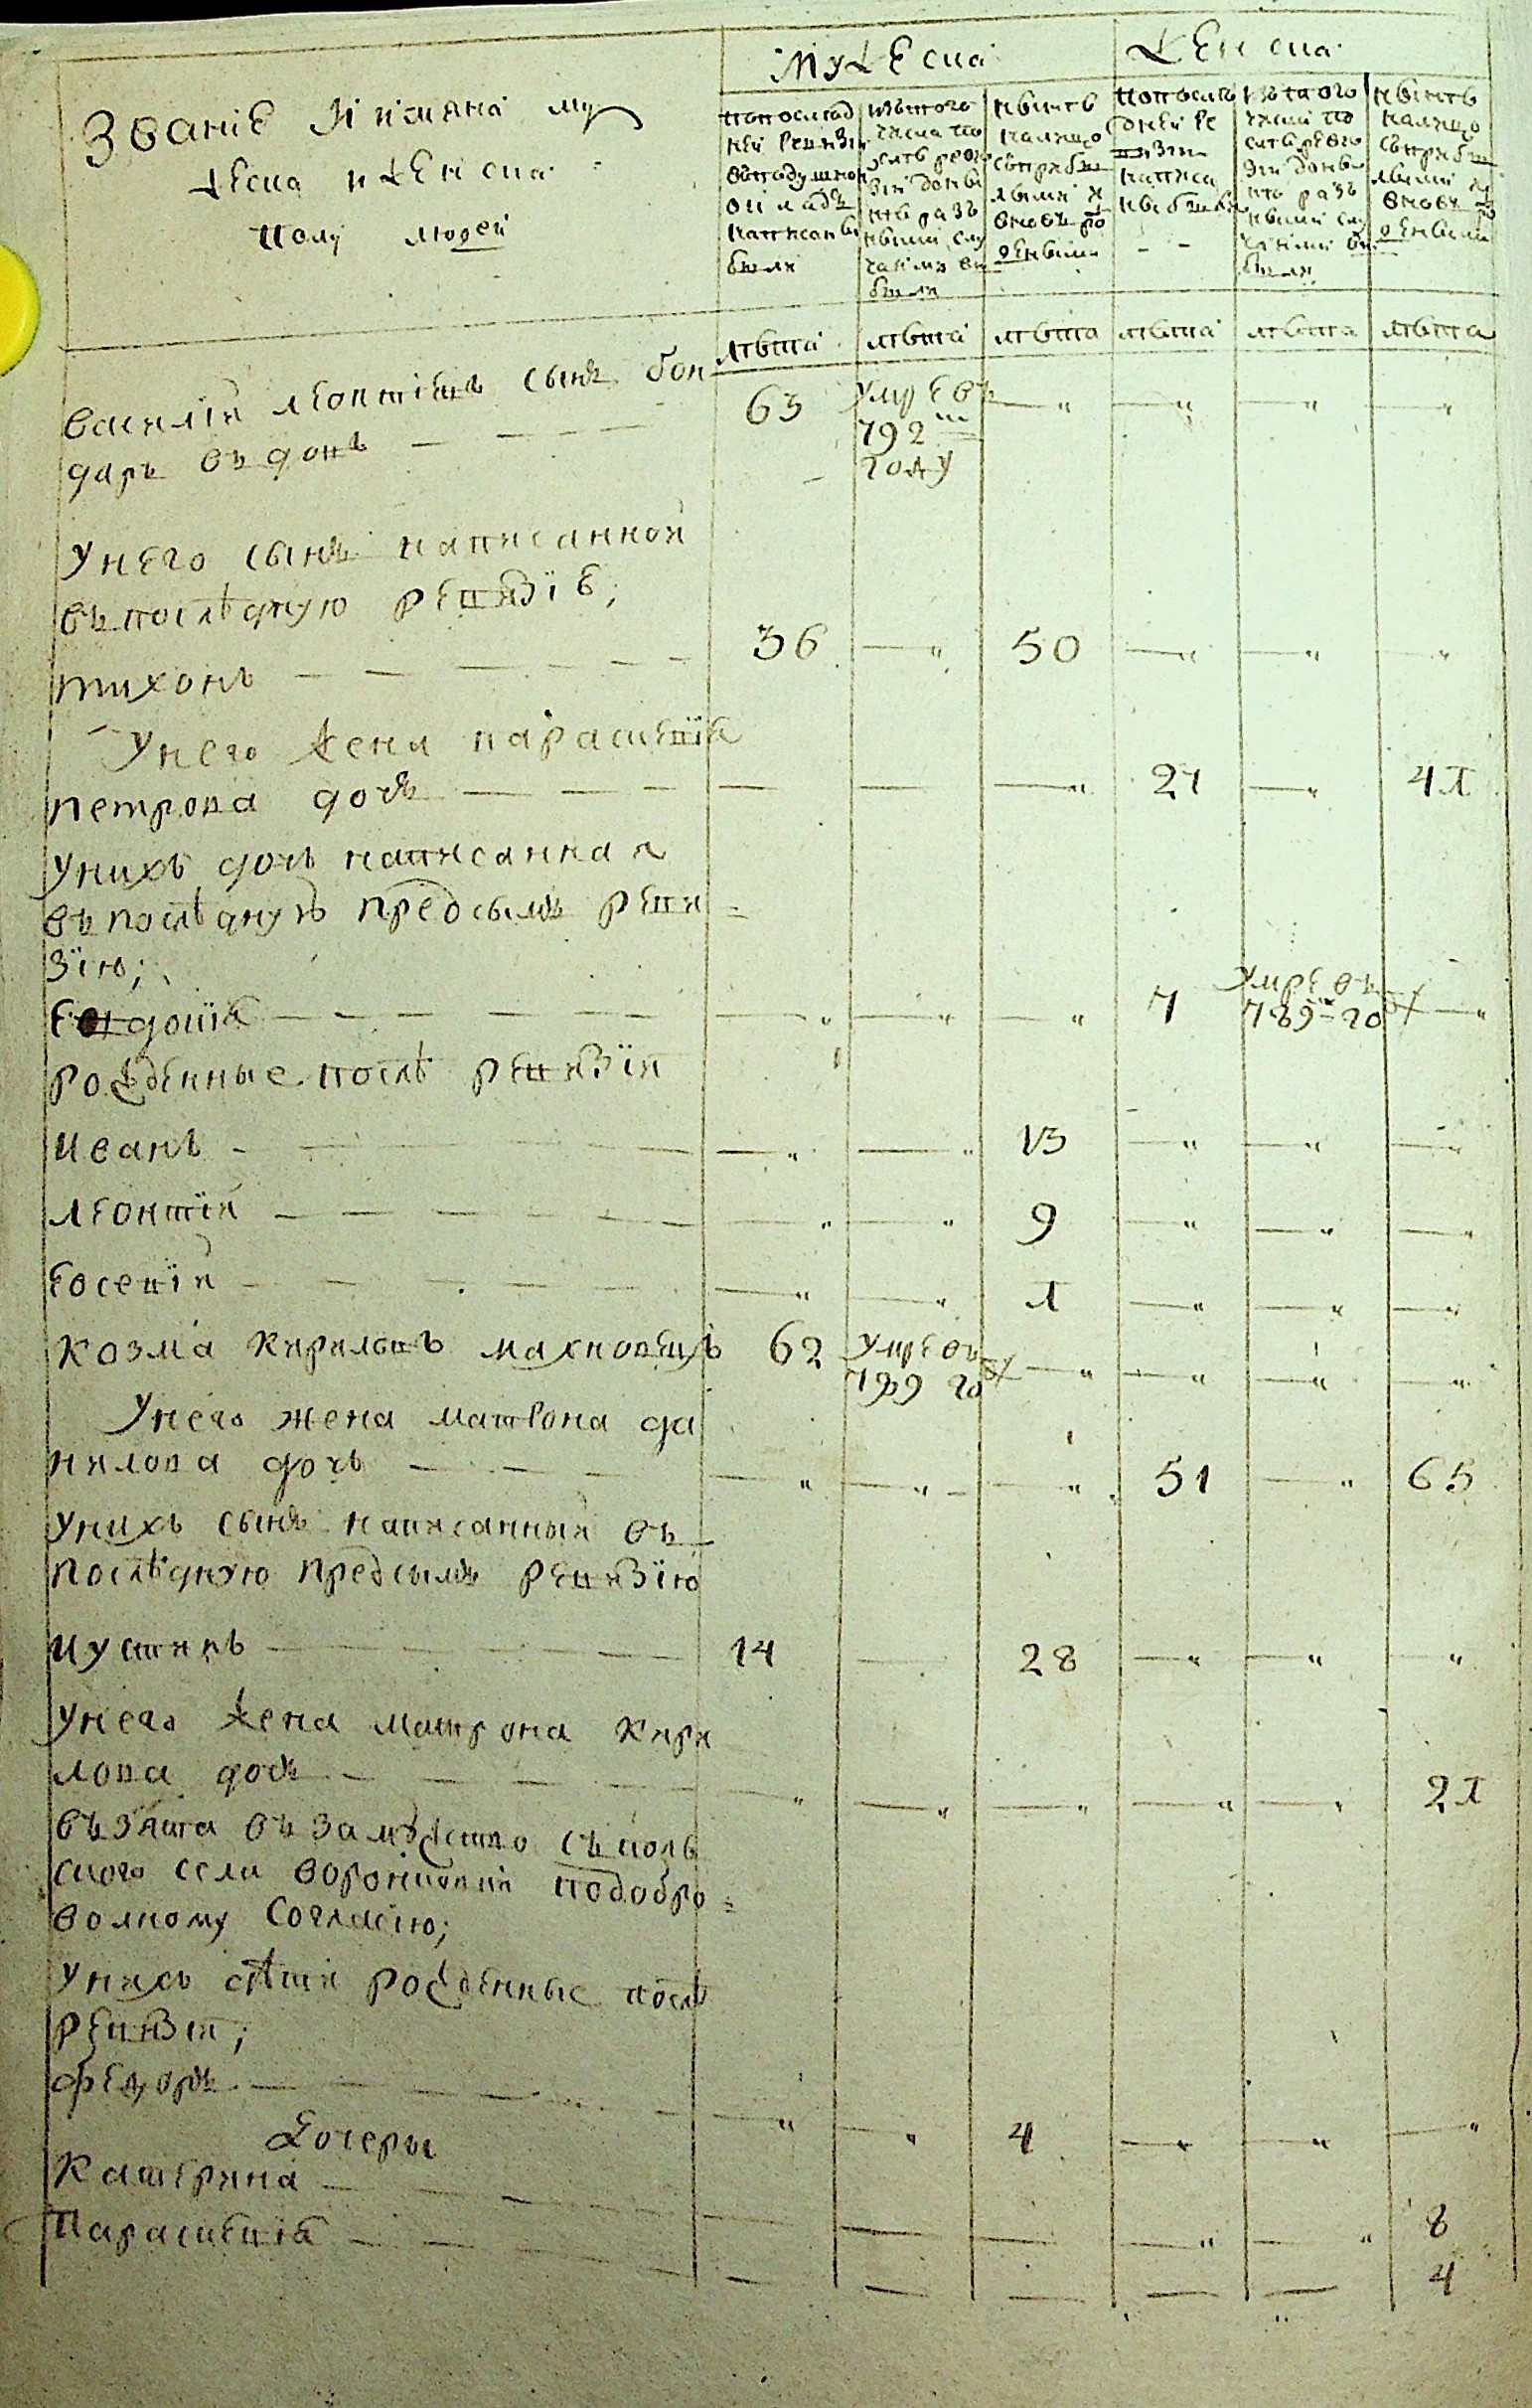 Мужеска
Женска
Званіе Иімяна му
жеска и женска
полу людей
попослѣд
ней ревизіи
въподушном
окладѣ
написаны
были
изътого
числа по
слѣ реви
зіи донынѣ
разъ
ными слу
чаями вы
были
нынѣ
налицо
съприбы
лыми и
вновь ро
ждеными
попослѣ
дней ре
визіи
написа
ны были
изътого
числа по
слѣ реви
зіи доны
нѣ разъ
ными слу
чаями вы
были
нынѣ
налицо
съприбы
лыми и
вновь ро
ждеными
лѣта лѣта лѣта лѣта лѣта лѣта
Василій леонтіевъ сынъ бон
даръ въдовъ — — — — 63 Умре въ 792м году — „ — „ — „ — „
Унего сынъ написанной
въпослѣдную ревизіе;
тихонъ — — — — — — 36 — „ 50 — „ — „ — „
Унего жена парасцевія
петрова дочь — — — — — — „ 21 — „ 41
Унихъ дочь написанная
въпослѣдную предсымъ реви
зію;
Евдокія — — — — — — „ — „ — „ 7 Умре въ 789м году — „
рожденные послѣ ревизіи
Иванъ — — — — „ — „ 13 — „ — „ — „
леонтій — — — — — — „ — „ 9 — „ — „ — „
Евсевій — — — — — „ — „ 1 — „ — „ — „
козма кириловъ махновецъ 62 Умре въ 789 году — „ — „ — „ „
Унего жена матрона да
нилова дочь — — — — „ — „ — „ 51 — „ 65
Унихъ сынъ написанный въ
послѣдную предсымъ ревизію
иустинъ — — — — 14 — 28 — „ — „ — „
Унего жена матрона кири
лова дочь — — — — „ — „ — „ — „ — „ 21
въ взята въ замужство съполь
ского села подобро
волному согласію;
Унихъ дѣти рожденные послѣ
ревизіи;
федоръ — — — — „ — „ 4 — „ — „ — „
Дочеры
Катерина — — — — — — — „ — „ 8
Парасцевія — — — — — — — — — 4